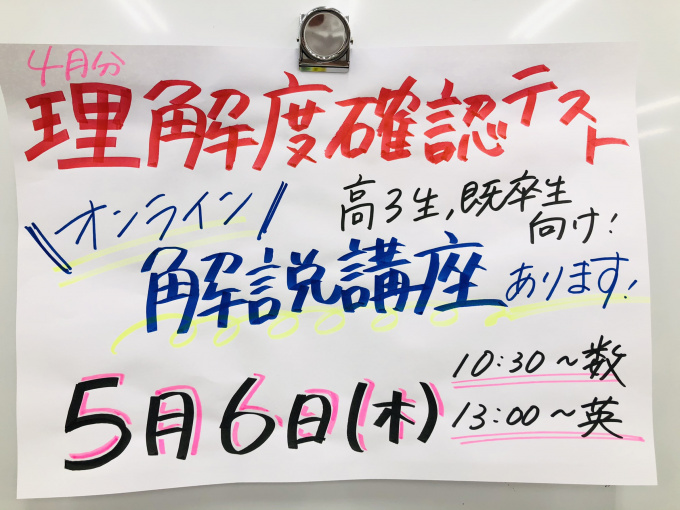 4月分
理解度確認テスト
\\オンライン//
高3生,既卒生
向け!
解説講座あります!
5月6日(木)
10:30~数
13:00~英